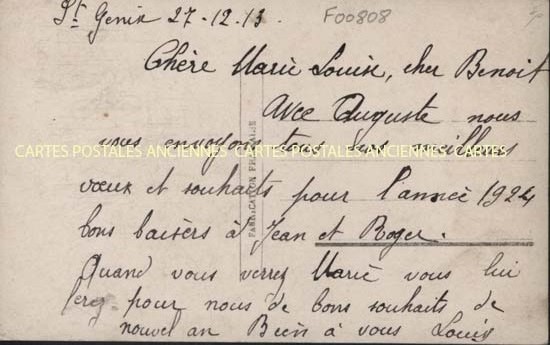 St Genix 27-12.13
F00808
Chère Marie Louise, cher Benoit
Avec Auguste nous
vous envoyons tous nos meilleurs
CARTES POSTALES ANCIENNES CARTES POSTALES ANCIENNES CARTES
voeux et souhaits pour l'année 1924
bons baisers à Jean et Roger.
Quand vous verrez Marie vous lui
ferez pour nous de bons souhaits de
nouvel an Bien à vous Louis
FABRICATION